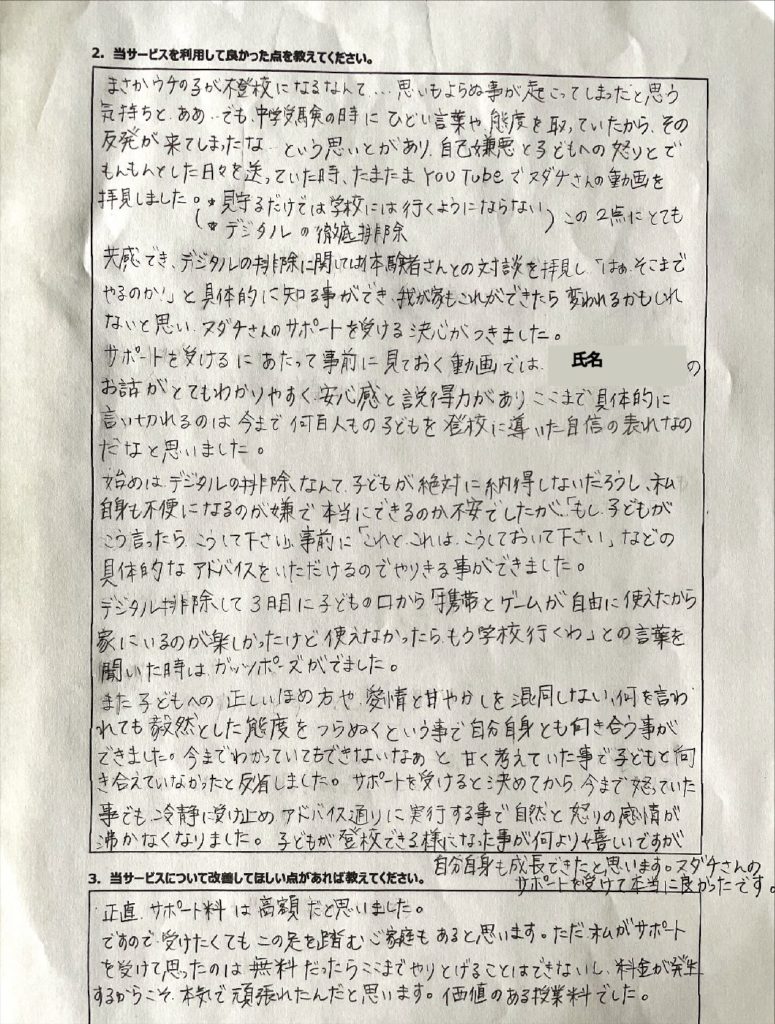 2. 当サービスを利用して良かった点を教えてください。
まさかウチの子が不登校になるなんて…思いもよらぬ事が起こってしまったと思う
気持ちと、ああ…でも、中学受験の時に ひどい言葉や、態度を取っていたから、その
反発が来てしまったな…という思いとがあり、自己嫌悪と子どもへの怒りとで
もんもんとした日々を送っていた時、たまたま YouTubeでスダチさんの動画を
拝見しました。(*見守るだけでは学校には行くようにならない
*デジタルの徹底排除) この2点にとても
共感でき、デジタルの排除に関しては体験者さんとの対談を拝見し、「はぁ、そこまで
やるのか!」と具体的に知る事ができ、我が家もこれができたら変われるかもしれ
ないと思い、スダチさんのサポートを受ける決心がつきました。
サポートを受けるにあたって事前に見ておく動画では、氏名の
お話がとてもわかりやすく、安心感と説得力があり、ここまで具体的に
言い切れるのは今まで何百人もの子どもを登校に導いた自信の表れなの
だなと思いました。
始めは、デジタルの排除なんて、子どもが絶対に納得しないだろうし、私
自身も不便になるのが嫌で本当にできるのか不安でしたが、「もし、子どもが
こう言ったら、こうして下さい」、事前に「これと、これは、こうしておいて下さい」などの
具体的なアドバイスをいただけるのでやりきる事ができました。
デジタル排除して3日目に子どもの口から「携帯とゲームが自由に使えたから
家にいるのが楽しかったけど、使えなかったら、もう学校行くわ」との言葉を
聞いた時は、ガッツポーズがでました。
また子どもへの正しいほめ方や、愛情と甘やかしを混同しない、何を言わ
れても毅然とした態度をつらぬくという事で自分自身とも向き合う事が
できました。今までわかっていてもできないなぁと甘く考えていた事で子どもと向
き合えていなかったと反省しました。サポートを受けると決めてから、今まで怒っていた
事でも、冷静に受け止め、アドバイス通りに実行する事で自然と怒りの感情が
沸かなくなりました。子どもが登校できる様になった事が何より嬉しいですが
自分自身も成長できたと思います。スダチさんの
サポートを受けて本当に良かったです。
3. 当サービスについて改善してほしい点があれば教えてください。
正直、サポート料は高額だと思いました。
ですので、受けたくても二の足を踏むご家庭もあると思います。ただ、私がサポート
を受けて思ったのは無料だったらここまでやりとげることはできないし、料金が発生
するからこそ、本気で頑張れたんだと思います。価値のある授業料でした。